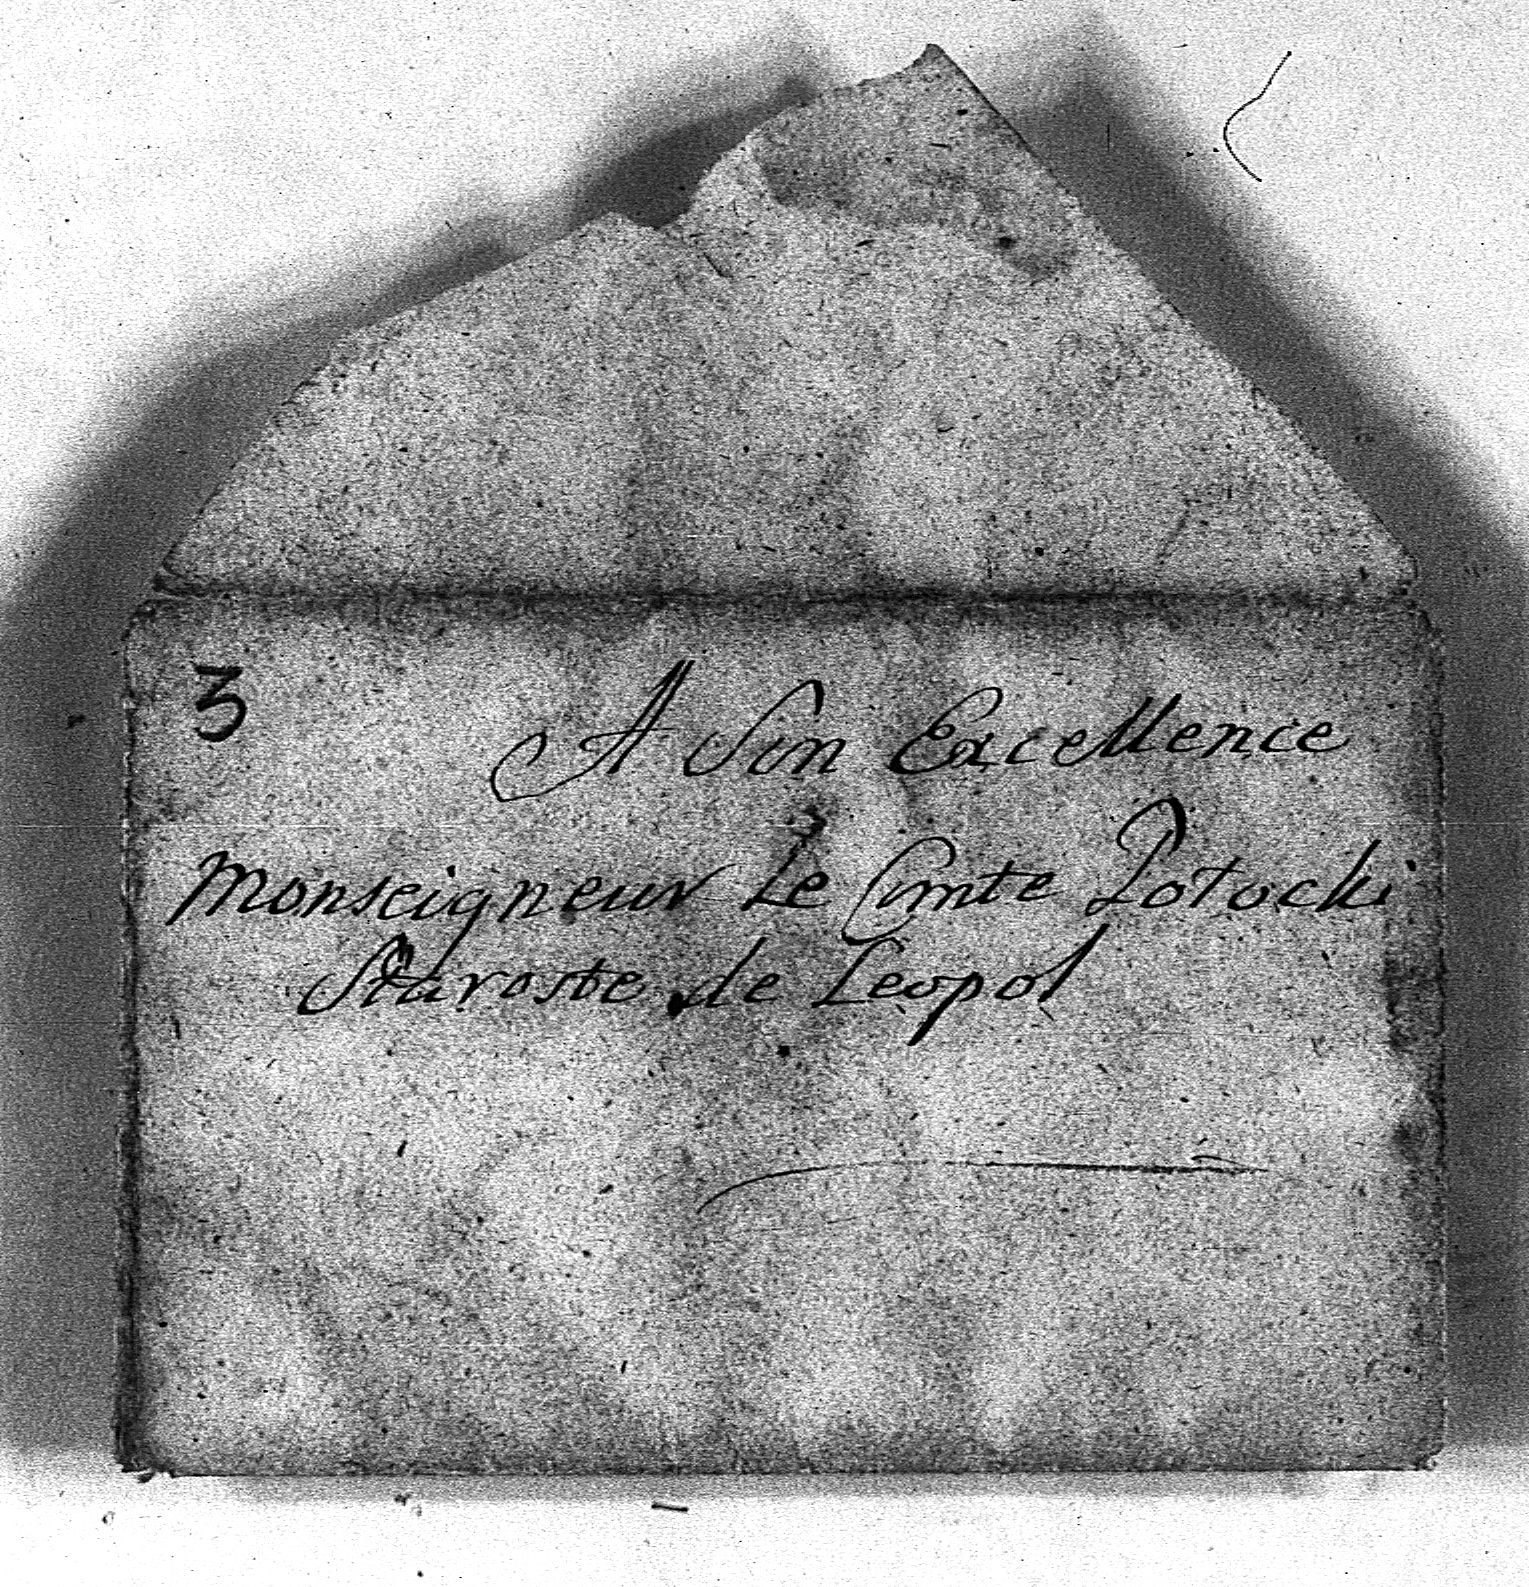 3
A Son Excellence
Monseigneur Le Comte Potocki
Staroste de Leopol